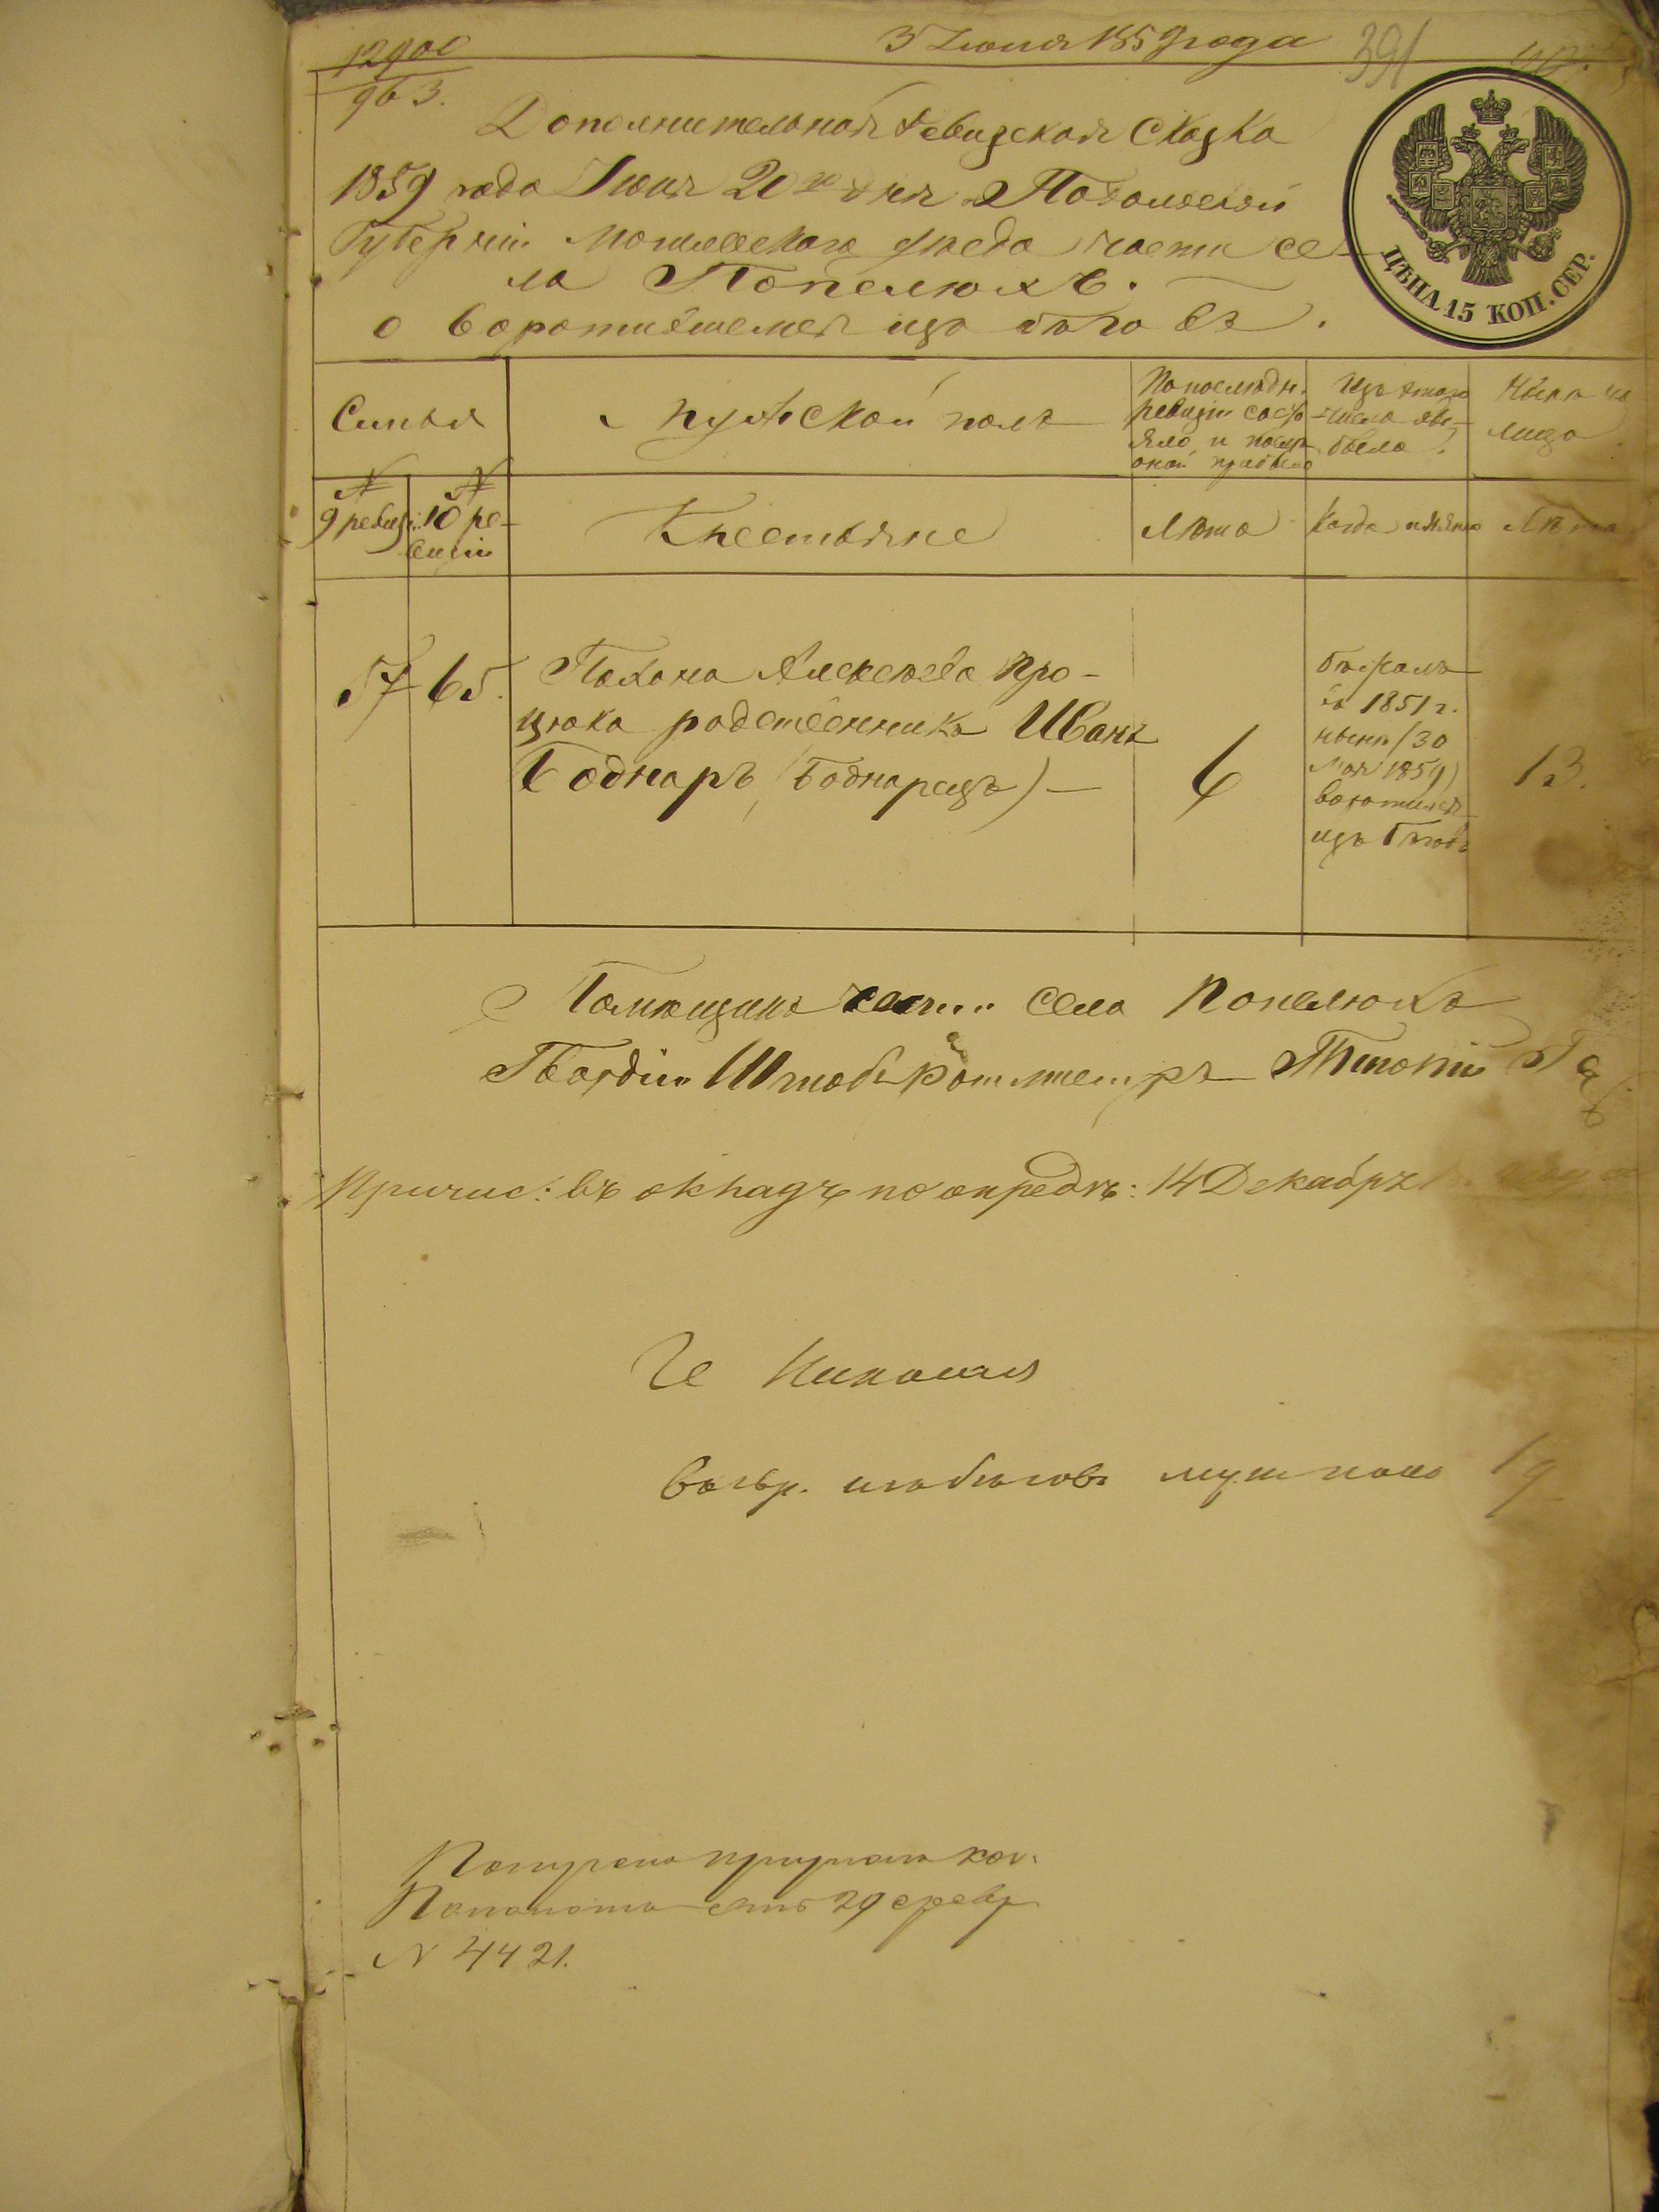 12900
963.
3 Іюля 1859 года
391
Дополнительная Ревизская Сказка
1859 года Іюня 20го дня Подольской
Губерніи Могилевскаго уезда части се-
ла Попелюхъ.
о воротившемся изъ бѣговъ.
ЦѢНА 15 КОП. СЕР.
Семья
Мужской полъ
По послѣдн.
ревизіи состо
яло и послѣ
оной прибыло
Изъ этаго
числа вы-
было
Нынѣ на
лицо
№
9 ревиз:
№
10 ре-
визіи
Крестьяне
Лѣта
Когда именно
Лѣта
57
65.
Пахома Алексѣева Про-
цюка родственникъ Иванъ
Боднаръ (Боднарецъ) —
6
бѣжалъ
въ 1851 г.
нынѣ (30
Мая 1859)
воротился
изъ бѣговъ
13.
Помѣщикъ части села Попелюхъ
Гвардіи Штабъ Ротмистръ
Причис: въ окладъ по опредѣ: 14 Декабря
Николая
изъ бѣговъ муж пола
19
№ 4421.